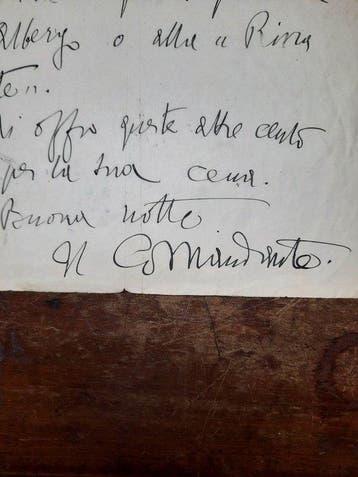 albergo o alla « Riva
te».
offro queste altre cento
per la sua cena.
Buona notte
Il Comandante.